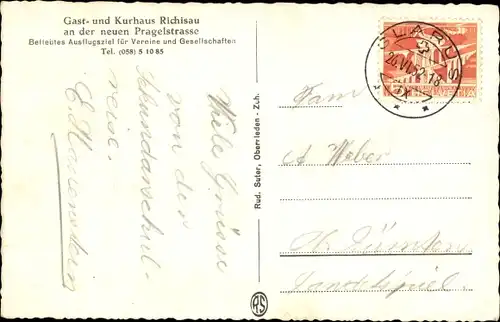 Gast- und Kurhaus Richisau
an der neuen Pragelstrasse
Beliebtes Ausflugsziel für Vereine und Gesellschaften
Tel. (058) 5 10 85
Viele Grüsse
von der
Sekundarschul-
reise.
Rud. Suter, Oberrieden - Zch.
RS
GLARUS
26.VI.52-18
Fam
A Weber